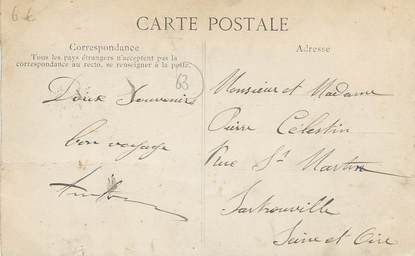 6 €
CARTE POSTALE
Correspondance
Tous les pays étrangers n'acceptent pas la
correspondance au recto, se renseigner à la poste.
63
Doux Souvenirs
bon voyage
Adresse
Monsieur et Madame
Pierre Célestin
Rue St Martin
Sartrouville
Seine et Oise